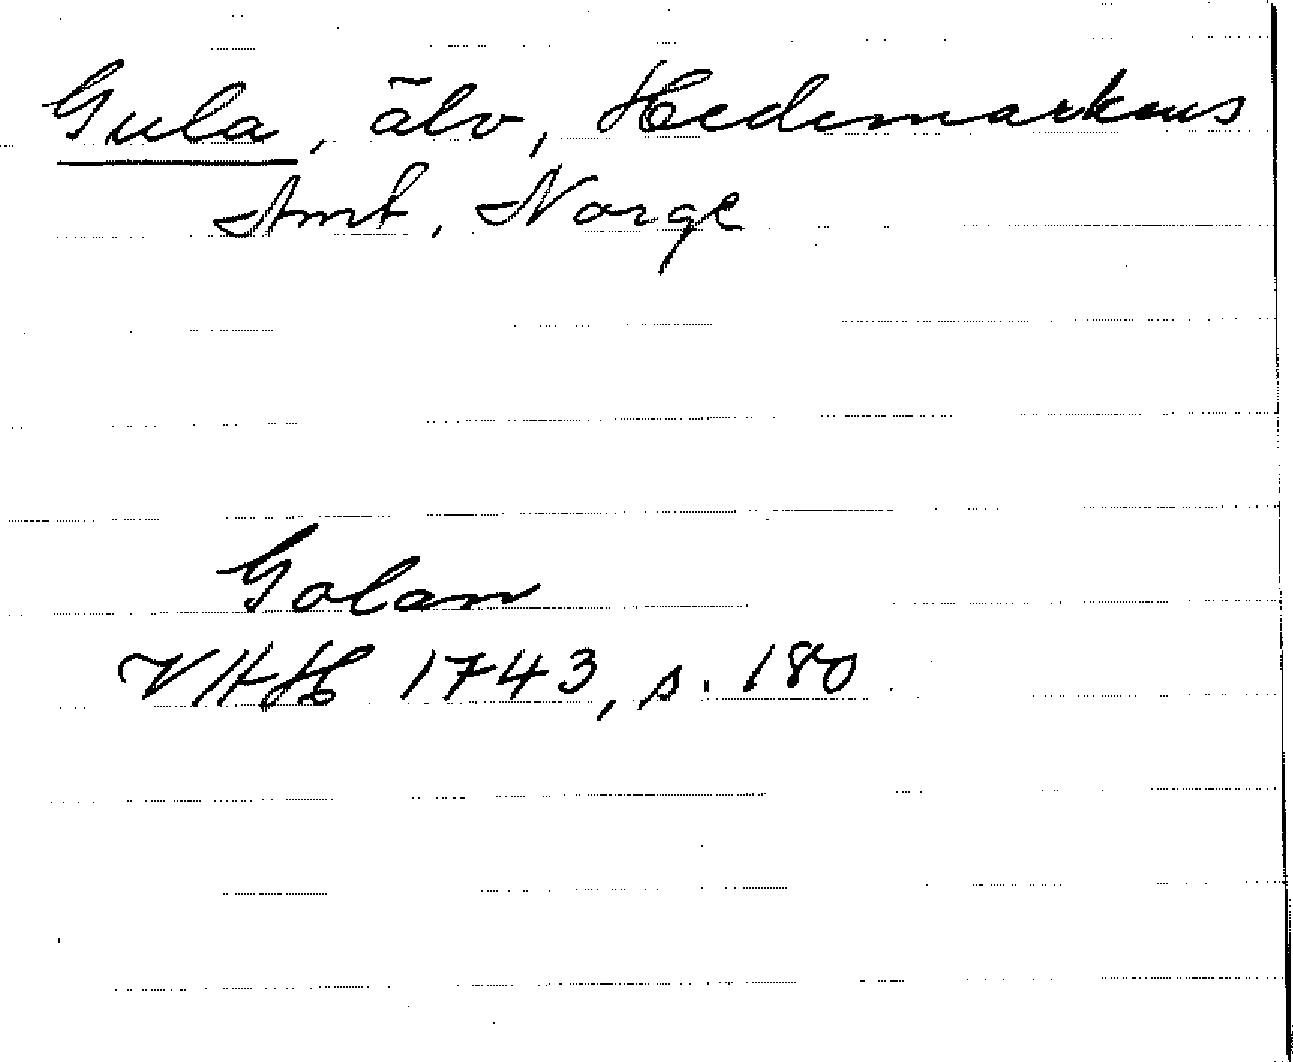 Gula, älv, Hedemarkens
Amt, Norge
Golan
VHH 1743, s. 180